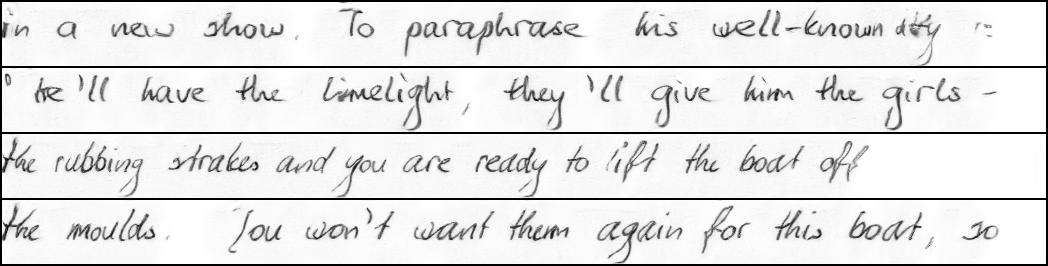 in a new show. To paraphrase his well-known ditty :
" He'll have the limelight, they 'll give him the girls -
the rubbing strakes and you are ready to lift the boat off
the moulds. You won't want them again for this boat, so